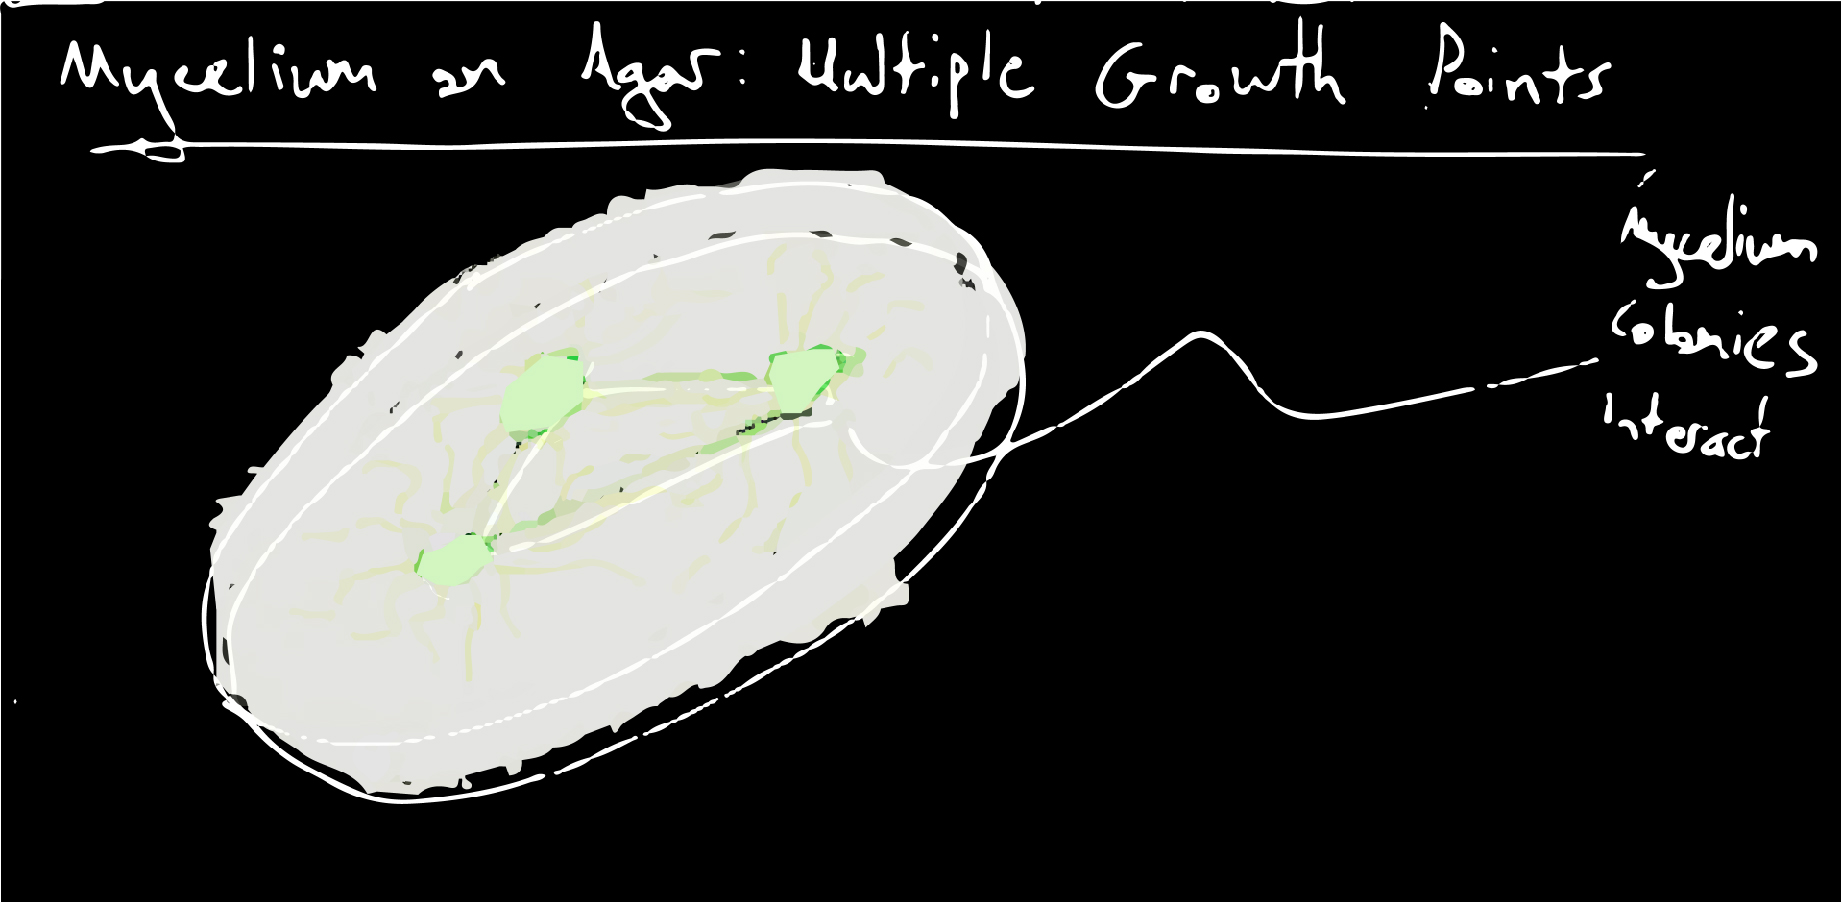 Mycelium on Agar: Multiple Growth Points
Mycelium
Colonies
Interact